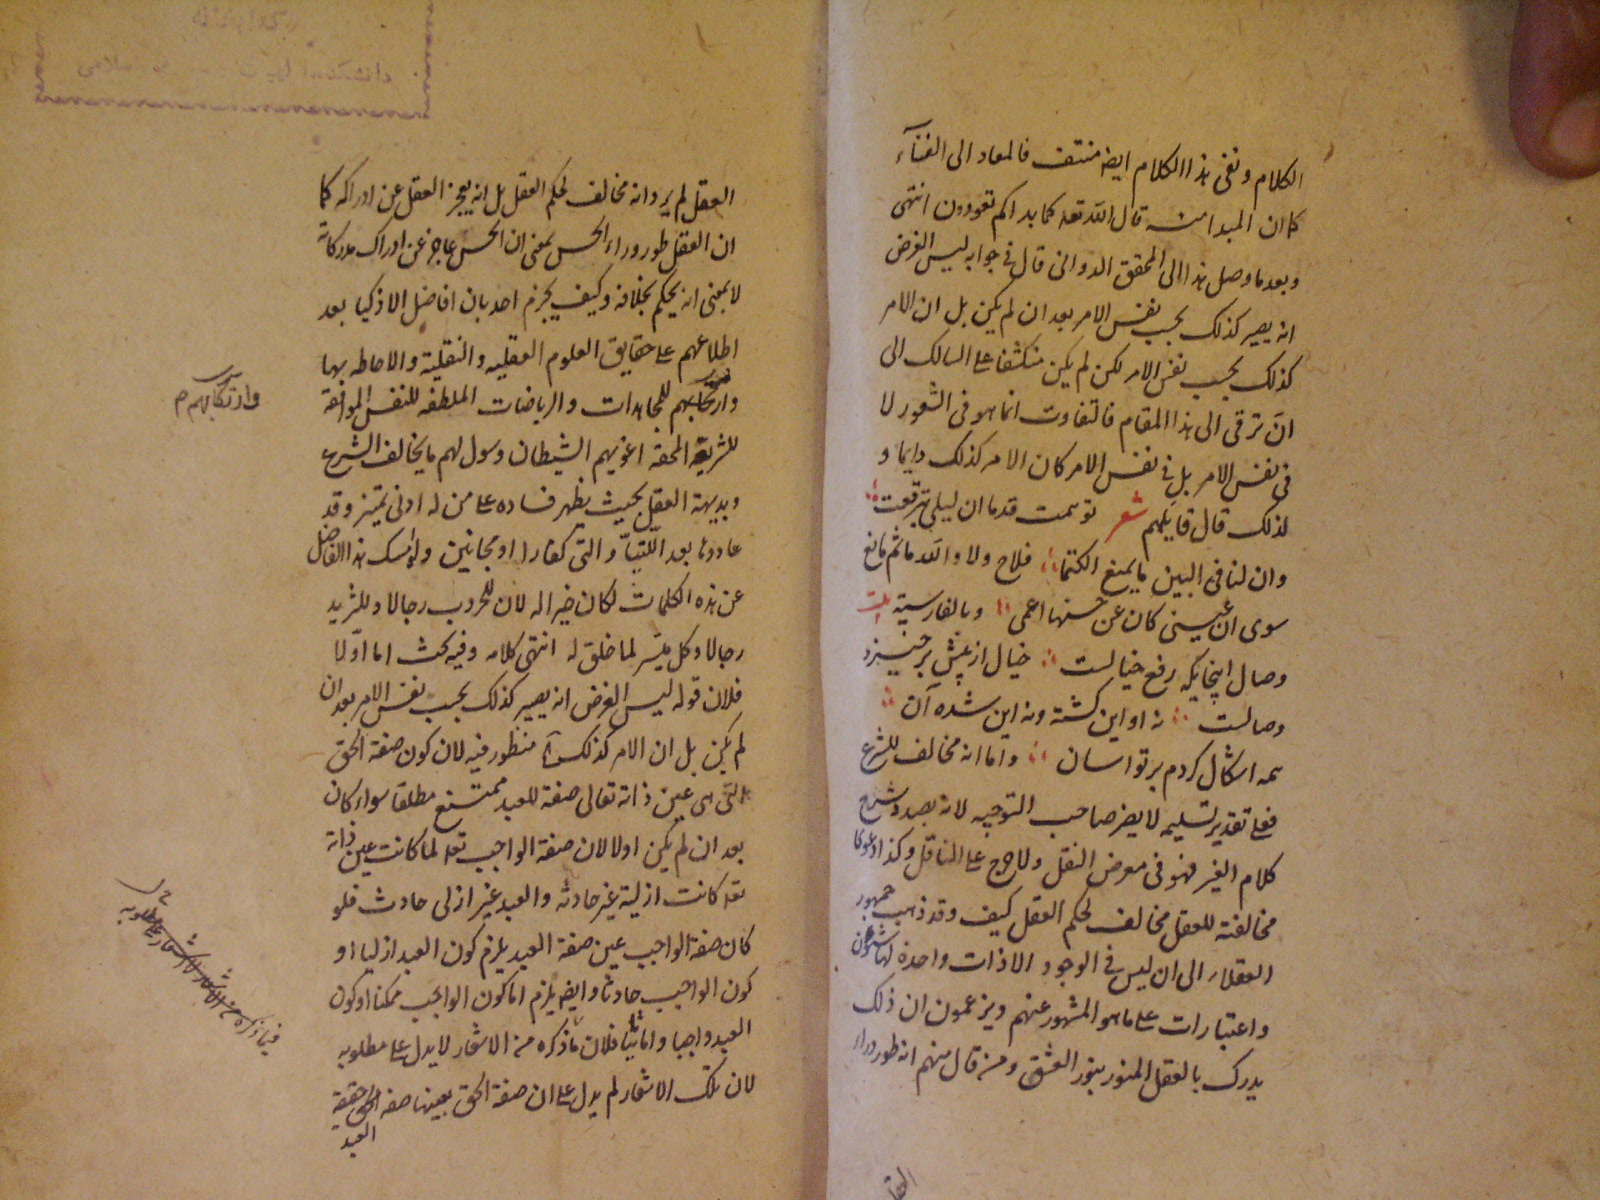 الكلام ونفى هذا الكلام ايضه منتف فالمعاد الى الفنآء
كما ان المبدا منه قال الله تعه كما بداكم تعودون انتهى
وبعد ما وصل هذا الى المحقق الدوانى قال فى جوابه ليس الغرض
انه يصير كذلك بحسب نفس الامر بعد ان لم يكن بل ان الامر
كذلك بحسب نفس الامر لكن لم يكن منكشفا على السالك الى
ان ترقى الى هذا المقام فالتفاوت انما هو فى الشعور لا
فى نفس الامر بل فى نفس الامر كان الامر كذلك دايما و
لذلك قال قايلهم شعر توسمت قدما ان ليلى تبرقعت
وان لنا فى البين ما يمنع الكتما فلاح ولا والله ما ثم مانع
سوى ان عينى كان عن حسنها اعمى وبالفارسية بيت
وصال اينجايكه رفع خيالست خيال از پيش برخيزد
وصالست نه او اين گشته ونه اين شده آن
همه اشكال كردم بر تو اسان واما انه مخالف للشرع
فعلى تقدير تسليمه لا يضر صاحب التوجيه لانه بصدد شرح
كلام الغير فهو فى معرض النقل ولا حرج على الناقل وكذا دعوى
مخالفته للعقل مخالف لحكم العقل كيف وقد ذهب جمهور
العقلاء الى ان ليس فى الوجود الا ذات واحدة لها شئون
واعتبارات على ما هو المشهور عنهم ويزعمون ان ذلك
يدرك بالعقل المنور بنور العشق ومن قال منهم انه طور وراء
العقل لم يرد انه مخالف لحكم العقل بل انه يعجز العقل عن ادراكه كما
ان العقل طور وراء الحس بمعنى ان الحس عاجز عن ادراك مدركاته
لا بمعنى انه يحكم بخلافه وكيف يجزم احد بان افاضل الاذكيا بعد
اطلاعهم على حقايق العلوم العقليه والنقلية والاحاطه بها
وارتكابهم للمجاهدات والرياضات الملطفه للنفس الموافقة
وارتكابهم م
للشريعة الحقه اغويهم الشيطان وسول لهم ما يخالف الشرع
وبديهة العقل بحيث يظهر فساده على من له ادنى تميز وقد
عادوا بعد اللتيا والتى كفارا او مجانين ولو امسك هذا الفاضل
عن هذه الكلمات لكان خيرا له لان للحروب رجالا وللثريد
رجالا وكل ميسر لما خلق له انتهى كلامه وفيه بحث اما اولا
فلان قوله ليس الغرض انه يصير كذلك بحسب نفس الامر بعد ان
لم يكن بل ان الامر كذلك منظور فيه لان كون صفة الحق
التى هى عين ذاته تعالى صفة للعبد ممتنع مطلقا سواء كان
بعد ان لم يكن اولا لان صفة الواجب تعه لما كانت عين ذاته
تعه كانت ازلية غير حادثه والعبد غير ازلى حادث فلو
كان صفة الواجب عين صفة العبد يلزم كون العبد ازليا او
كون الواجب حادثا وايضه يلزم اما كون الواجب ممكنا او كون
العبد واجبا واما ثانيا فلان ما ذكره من الاشعار لا يدل على مطلوبه
لان تلك الاشعار لم يدل على ان صفة الحق بعينها صفه الخلق حقيقة
العبد